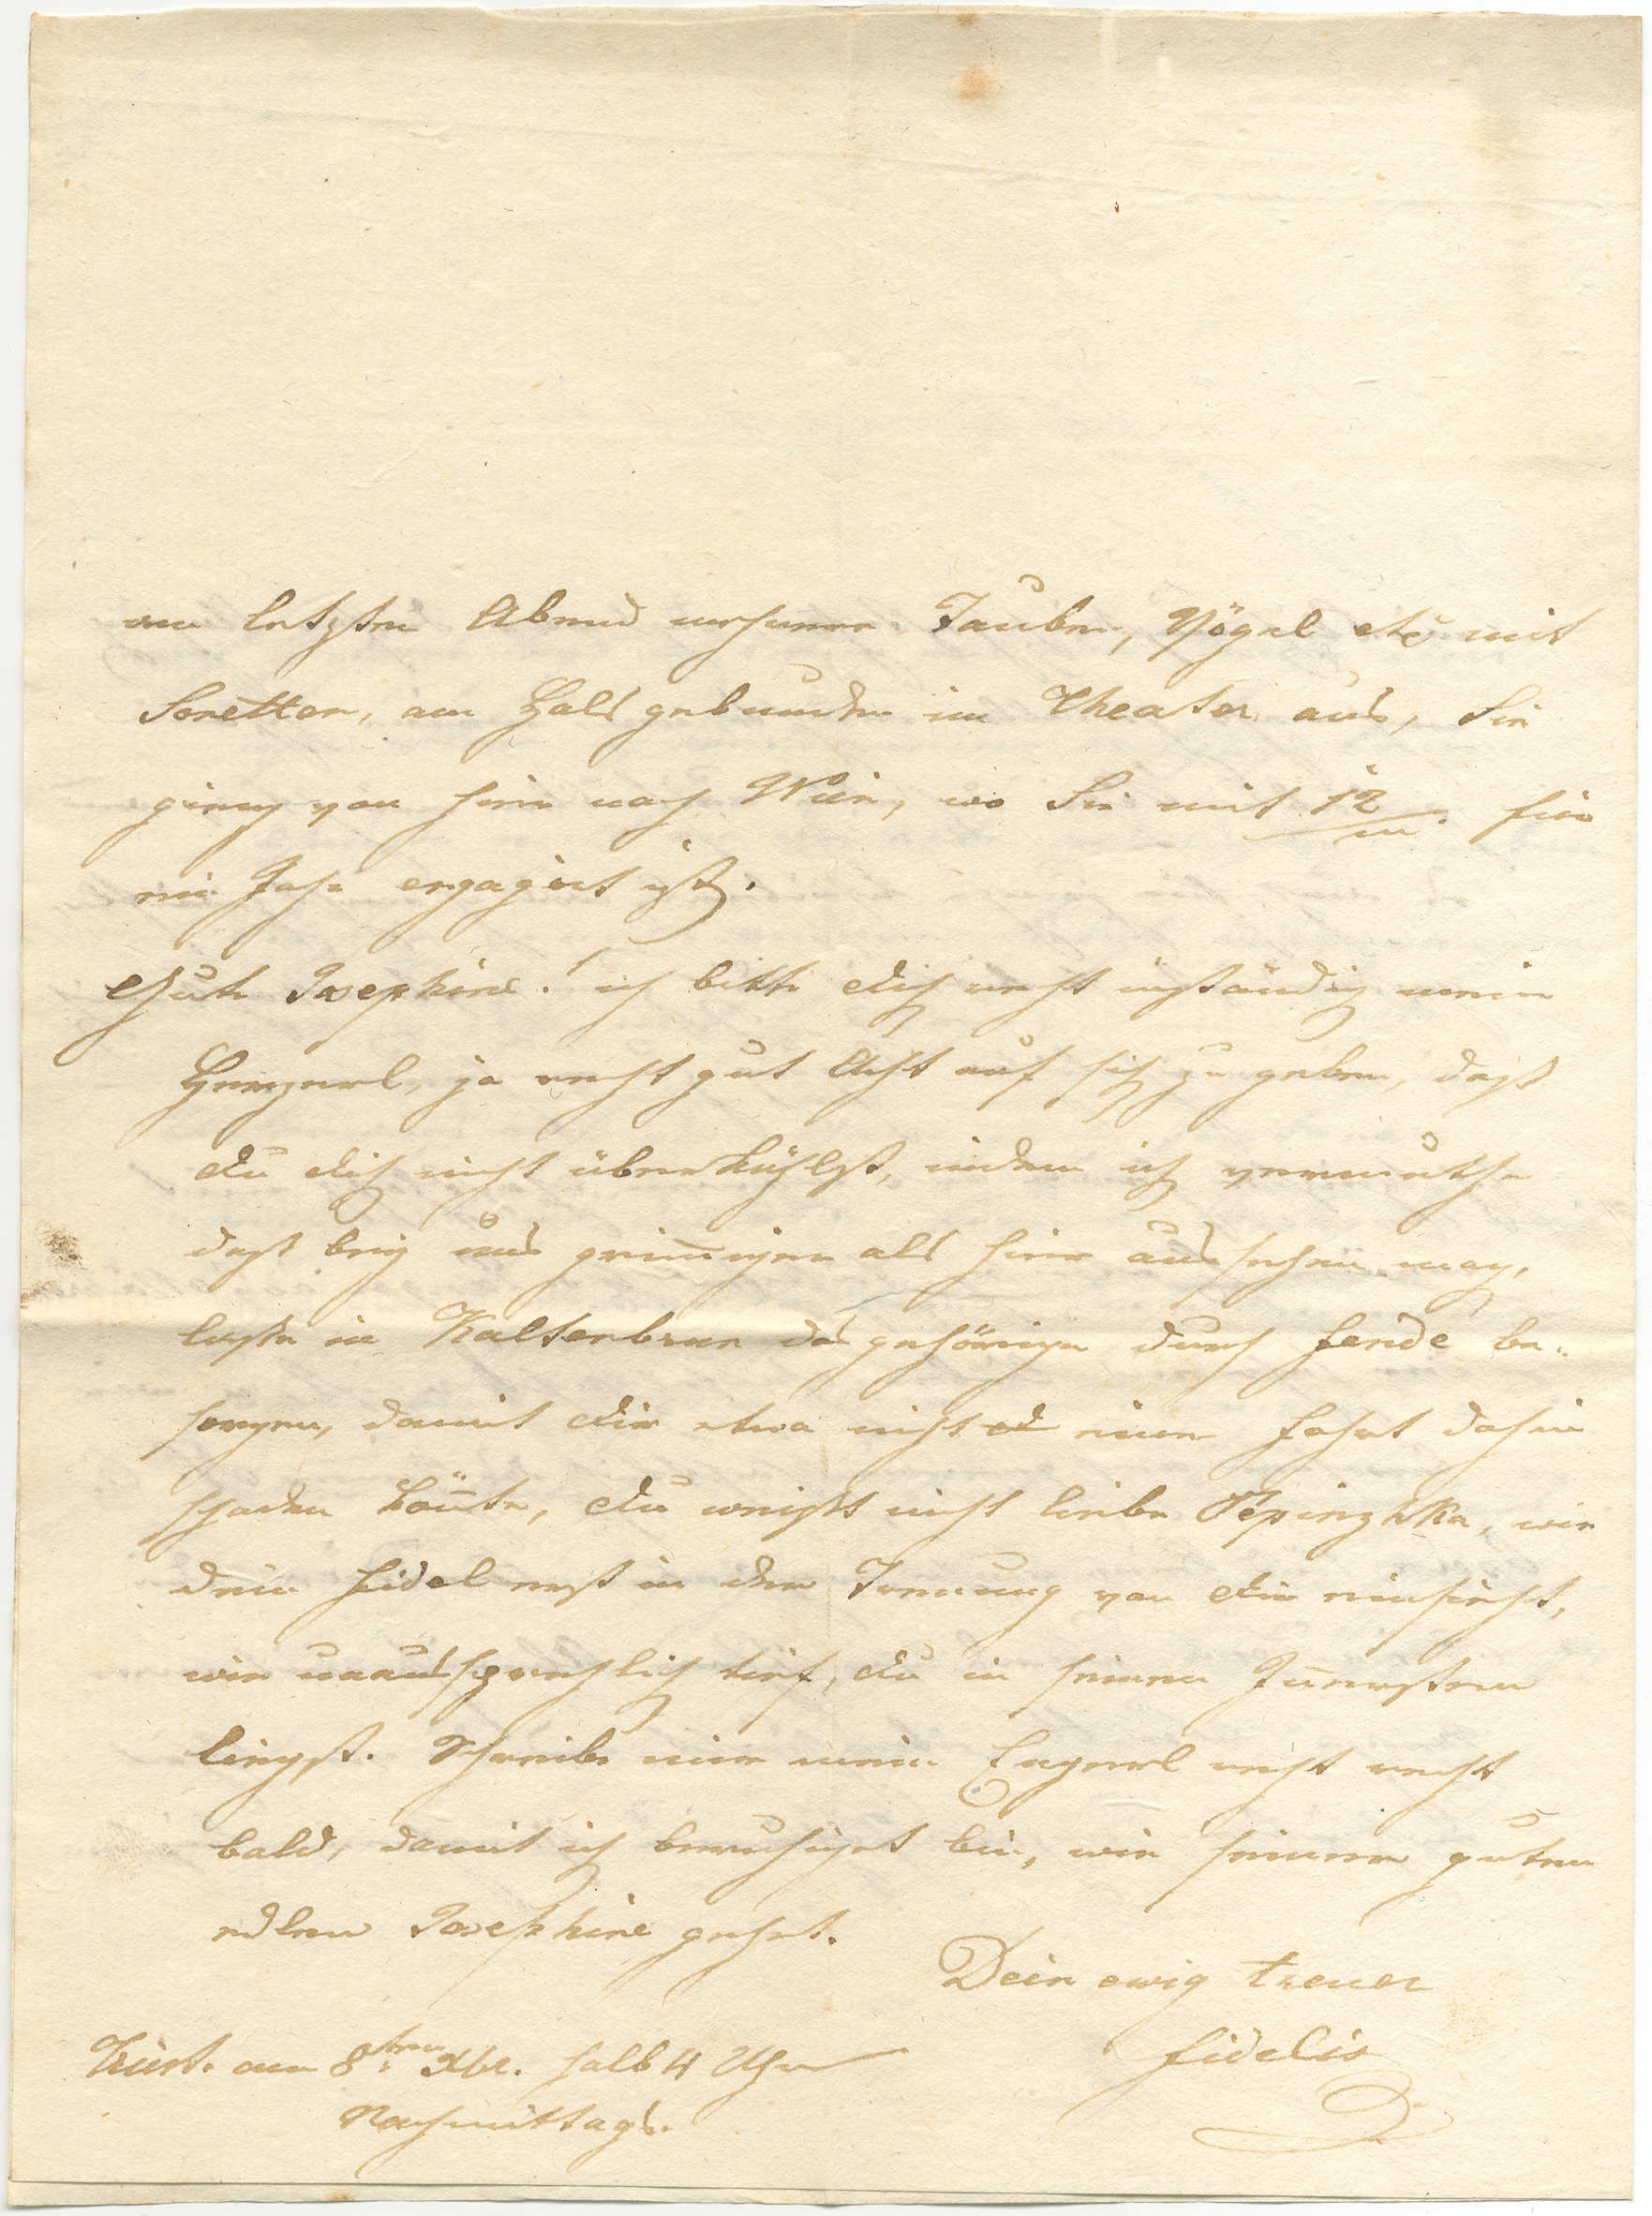 am letzten Abend mehrere Tauben, Vögel etc mit
Sonetten, am Hals gebunden im Theater aus, Sie
gieng von hier nach Wien, wo Sie mit 12/m. für
ein Jahr engagiert ist.
Gute Josephine! ich bitte dich recht inständig mein
Herzerl, ja recht gut Acht auf sich zu geben, daß
du dich nicht überkühlst, indem ich vermuthe
daß bey uns grimmiger als hier aussehen mag,
laße in Kaltenbrun das gehörige durch Ferdè be-
sorgen, damit dir etwa nicht eine Fahrt dahin
schaden könte, du weißt nicht liebe Pepinzhka, wie
dein Fidel erst in der Trennung von dir einsieht,
wie unaussprechlich tief, du in seinem Innersten
liegst. Schreibe mir mein Engerl recht recht
bald, damit ich beruhiget bin, wie seiner guten
edlen Josephine gehet.
Dein ewig treuer
Fidelis
Triest. am 8ten Xbr. halb 4 Uhr
Nachmittags.